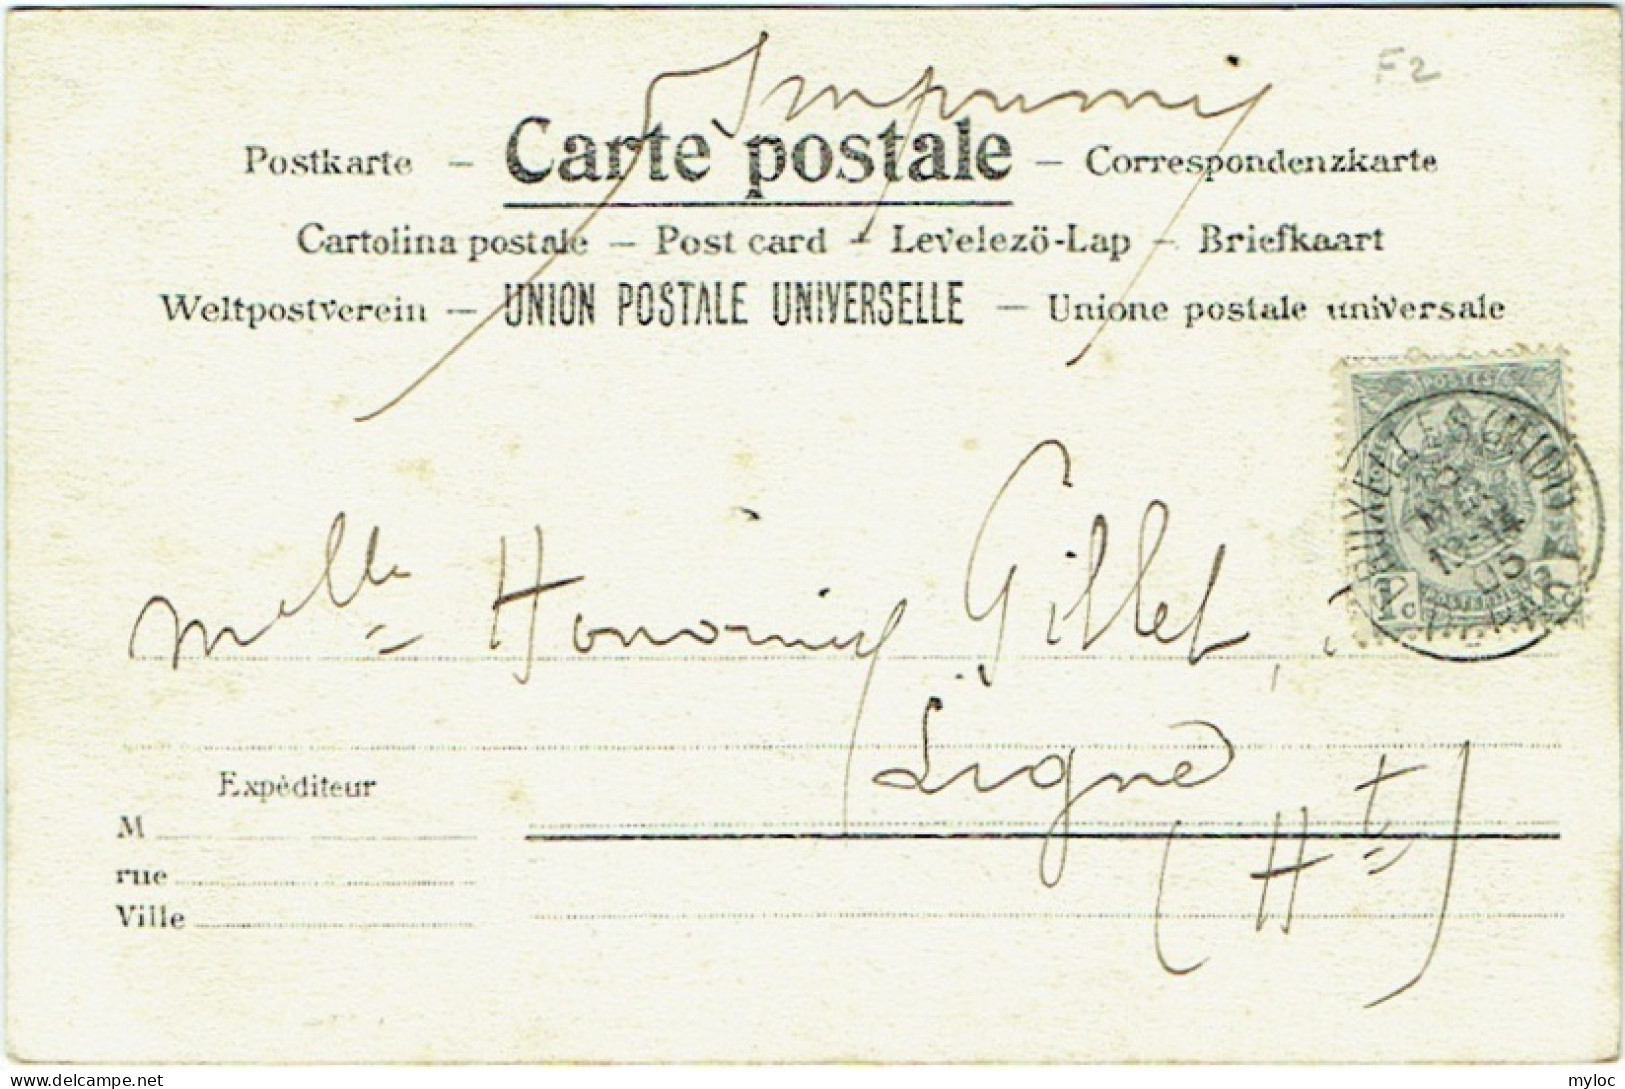 Imprimés
F2
Postkarte – Carte postale – Correspondenzkarte
Cartolina postale – Post card – Levelezö-Lap – Briefkaart
Weltpostverein – UNION POSTALE UNIVERSELLE – Unione postale universale
POSTES
BRUXELLES (MIDI)
12-14
05
1c 1c
Melle Honorine Gillet,
Ligne
(Ht)
Expéditeur
M
rue
Ville
myloc